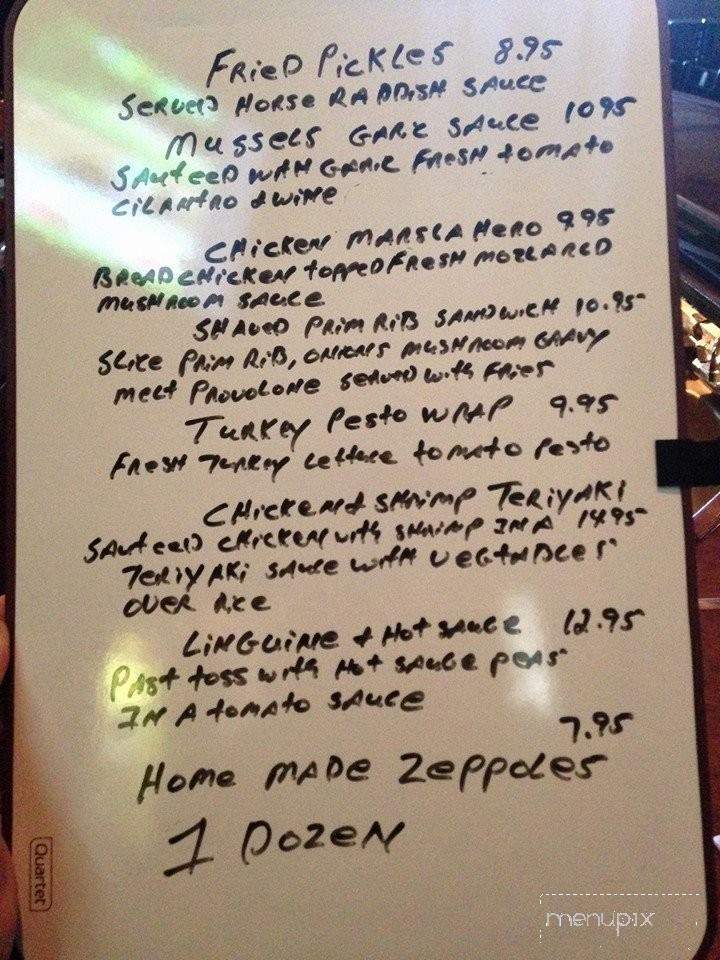 FRIED PICKLES 8.95
SERVED HORSE RADDISH SAUCE
MUSSELS GARIC SAUCE 1095
SAUTEED WITH GARIC FRESH TOMATO
CILANTRO & WINE
CHICKEN MARSLA HERO 9.95
BREAD CHICKEN TOPPED FRESH MOZLARED
MUSHROOM SAUCE
SHAVED PRIM RIB SANDWICH 10.95
SLICE PRIM RIB, ONIONS MUSHROOM GRAVY
MELT PROVOLONE SERVED WITH FRIES
TURKEY PESTO WRAP 9.95
FRESH TURKEY LETTUCE TOMATO PESTO
CHICKEN & SHRIMP TERIYAKI
SAUTEED CHICKEN WITH SHRIMP IN A 14.95
TERIYAKI SAUCE WITH VEGTABLES
OVER RICE
LINGUINE & HOT SAUCE 12.95
PAST TOSS WITH HOT SAUCE PEAS
IN A TOMATO SAUCE
7.95
HOME MADE ZEPPOLES
1 DOZEN
Quartet
menupix